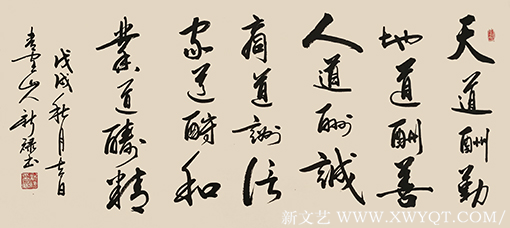 天道酬勤
地道酬善
人道酬誠
商道詶信
家道酬和
業道醻精
戊戌秋月吉日
山人新
新文艺 WWW.XWYQT.COM/